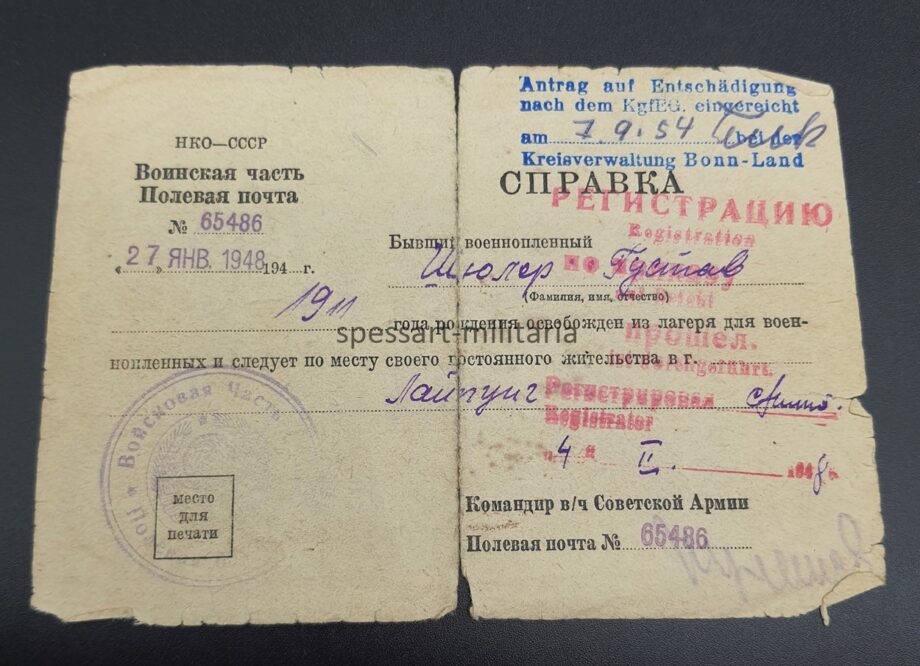 НКО—СССР
Воинская часть
Полевая почта
№ 65486
„27 ЯНВ. 1948 194 г.
Antrag auf Entschädigung
nach dem KgfEG. eingereicht
am 7.9.54 bei der
Kreisverwaltung Bonn-Land
СПРАВКА
РЕГИСТРАЦИЮ
Registration
Бывший военнопленный
Шюлер Густав
(Фамилия, имя, отчество)
1911 года рождения освобожден из лагеря для воен-
нопленных и следует по месту своего постоянного жительства в г.
Лайпциг
прошел.
durchgeführt.
Регистрировал
Registrator
„4“ II. 1948 г.
Войсковая Часть
место
для
печати
Командир в/ч Советской Армии
Полевая почта № 65486
spessart-militaria